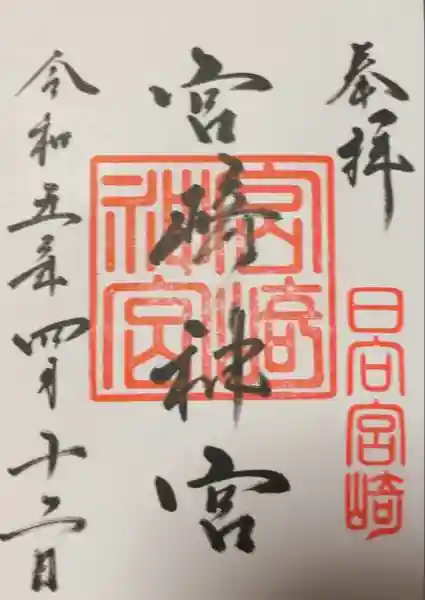 奉拝
日向宮崎
宮崎神宮
宮崎神宮
令和五年四月十二日